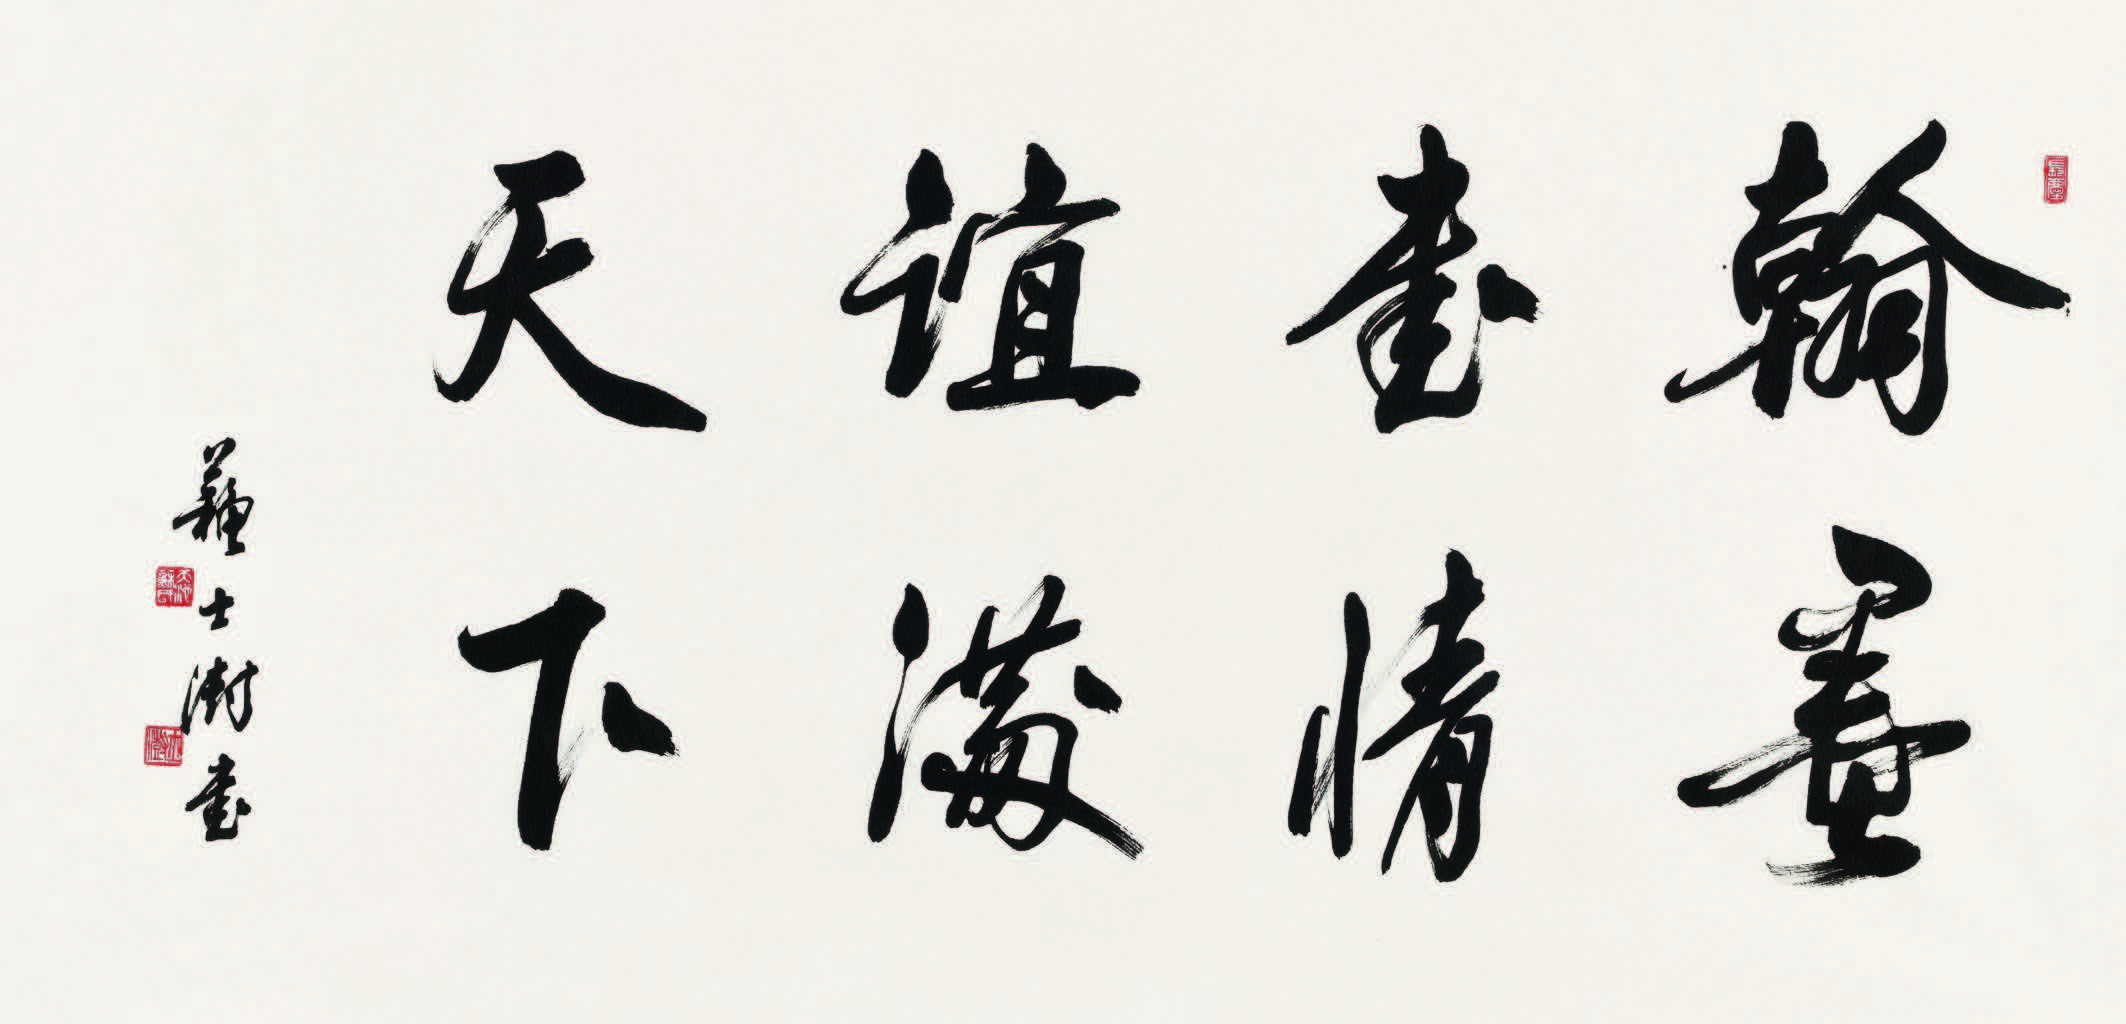 翰墨
書情
誼滿
天下
蘇士澍書